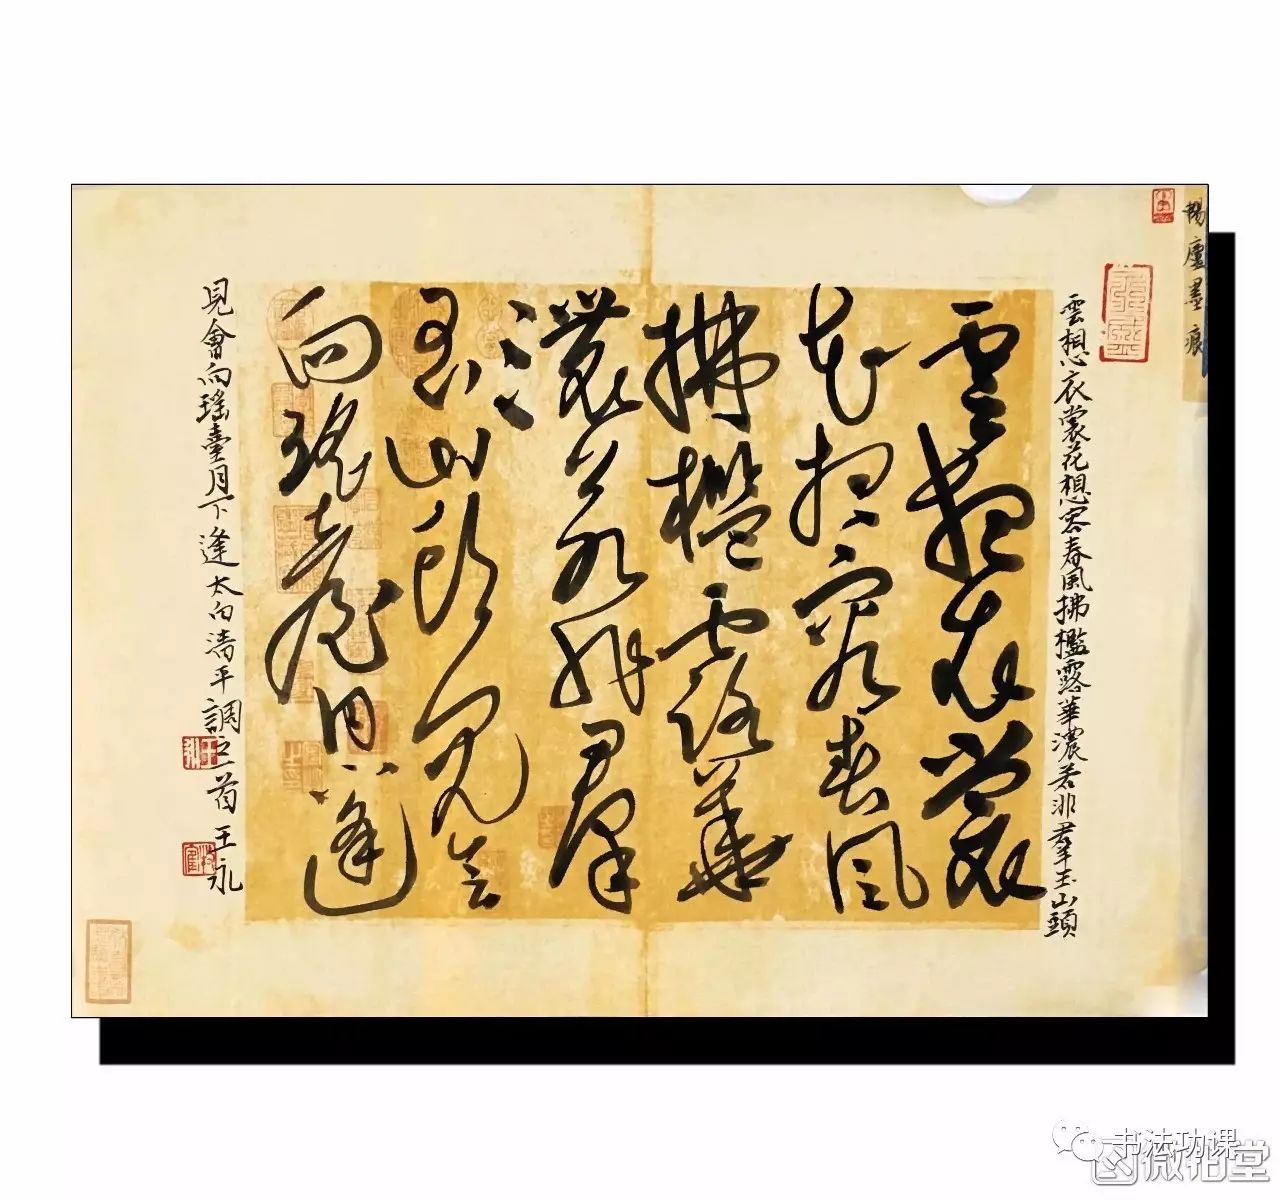 墨痕
雲想衣裳花想容春風拂檻露華濃若非羣玉山頭
雲想衣裳
花想容春風
拂檻露華
濃若非羣
玉山頭見會
向瑤臺月下逢
見會向瑤臺月下逢太白清平調之一首王永
书法功课
微拍堂